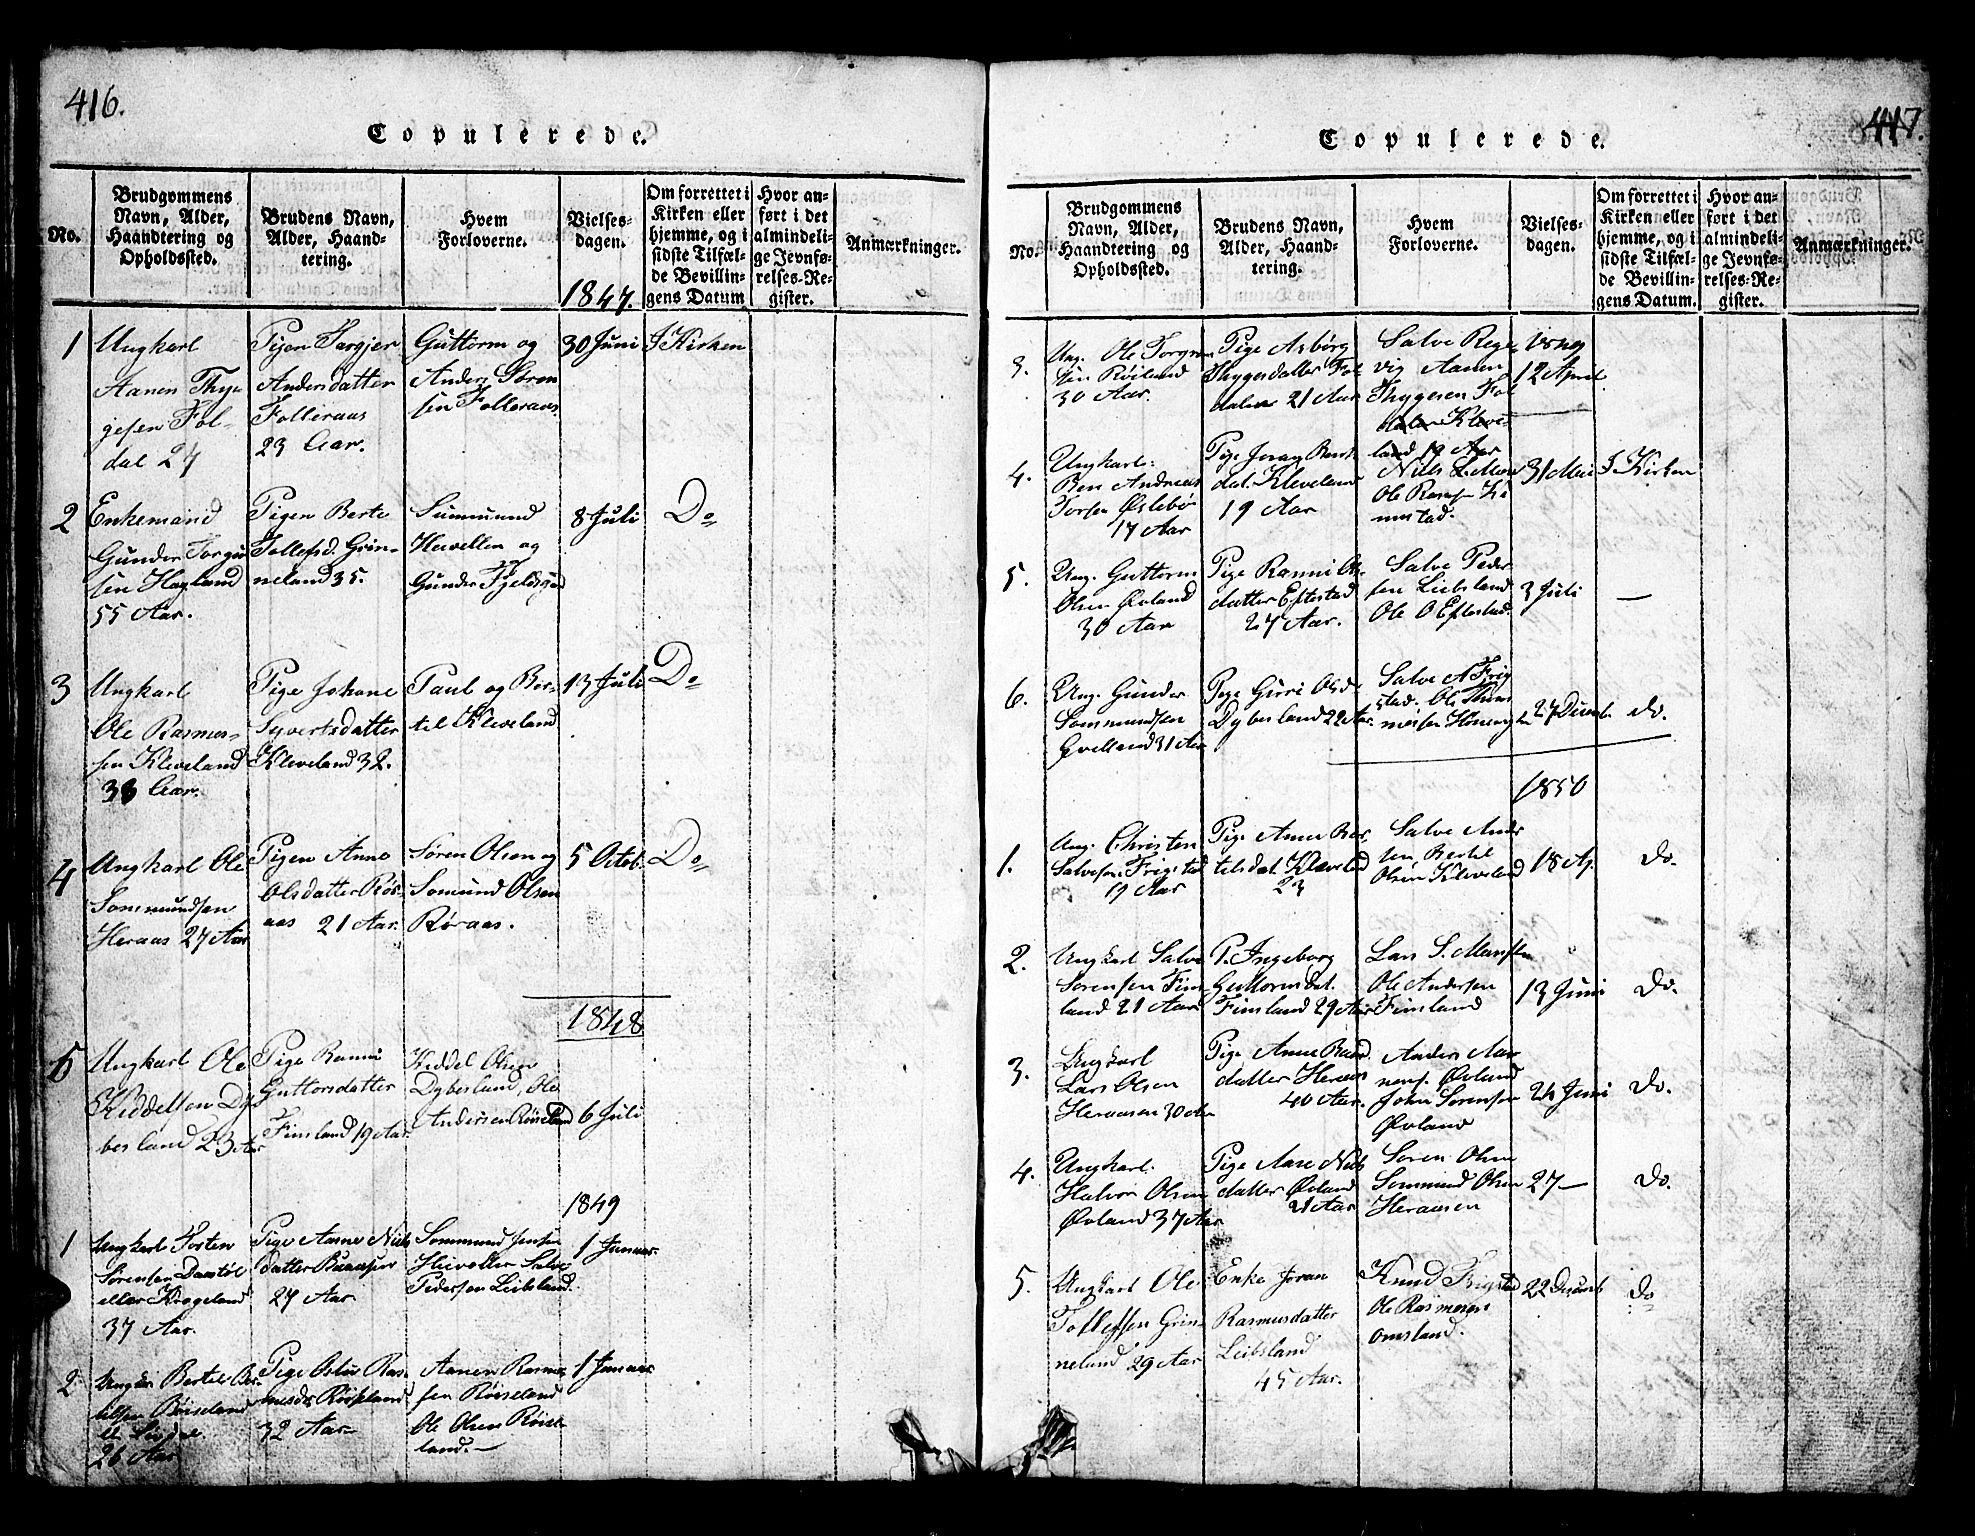 416.
Copulerede.
No.
Brudgommens
Navn, Alder,
Haandtering og
Opholdssted.
Brudens Navn,
Alder, Haand-
tering.
Hvem
Forloverne.
Vielses-
dagen.
1847.
Om forrettet i
Kirken eller
hjemme, og i
sidste Tilfæl-
de Bevillin-
gens Datum
Hvor an-
ført i det
almindeli-
ge Jevnfø-
relses-Re-
gister.
Anmærkninger.
1
Ungkarl
Aanen Thyge
gesen Fol-
dal 24
Pigen Targjer
Andersdatter
Folleraas
23 Aar.
Guttorm og
Anders Søren
sen Folleraas
30 Juni
I Kirken
2
Enkemand
Gunder Torgu
sen Hagland
55 Aar.
Pigen Berte
Tollefsd. Grin-
neland 35.
Summund
Hevellen og
Gunder Fjeldsgaa
8 Juli
Do
3
Ungkarl
Ole Rasmus-
sen Kleveland
33 Aar.
Pige Johane
Syvertsdatter
Kleveland 32.
Paul og Ber-
til Kleveland
13 Juli
Do
4
Ungkarl Ole
Sommundsen
Heraas 27 Aar
Pigen Anne
Olsdatter Rør-
aas 21 Aar.
Søren Olsen og
Somund Olsen
Røraas.
5 Octob.
Do
1848
5
Ungkarl Ole
Keddelsen Dy-
besland 23 Aar
Pige Ranni
Guttorsdatter
Finsland 19 Aar.
Keddel Olsen
Dybesland, Ole
Andersen Røiseland
6 Juli
1849
1
Ungkarl Torten
Sørensen
eller Krogeland
37 Aar.
Pige Aasne Niels
datter
27 Aar
Sommund Jensen
Hevollen Salve
Pedersen Leibsland.
1 Januar
2
Bertel Ber-
telsen Røiseland
26 Aar
Pige Oslur Ras-
musdr Røiseland
32 Aar
Aanen Rasmu
sen Røiseland
Ole Olsen Røise
land.
1 Januar
417.
Copulerede.
No.
Brudgommens
Navn, Alder,
Haandtering og
Opholdssted.
Brudens Navn,
Alder, Haand-
tering.
Hvem
Forloverne.
Vielses-
dagen.
Om forrettet i
Kirken eller
hjemme, og i
sidste Tilfæl-
de Bevillin-
gens Datum.
Hvor an-
ført i det
almindeli-
ge Jevnfø-
relses-Re-
gister.
Anmærkninger.
3.
Ung. Ole Torgus
sen Røiland
30 Aar.
Pige Asbörg
Thygesdatter Fol-
dalen 21 Aar
Salve Rege
vig Aanen
Thygesen Fol
12 April
4.
Ungkarl.
Ben Andreas
Torsen Øslebø
17 Aar
Pige Joran Bert
dat. Kleveland
19 Aar
Niels
Ole
31 Mai
I. Kirken
5.
Ung. Guttorm
Olsen Øvland
30 Aar
Pige Ranni Ols
datter Eftestad
27 Aar.
Salve Peder
sen Leibsland
Ole O Eftestad.
3 Juli
—
6.
Ung. Gunder
Sommundsen
Hvelland 31 Aar
Pige Gurri Olsd
Dybesland 22 Aar.
Salve A Frig
stad. Ole
27 Decemb.
do.
1850
1.
Ung. Christen
Salvesen Frigsted
19 Aar
Pige Anne Ber
telsdat. Kleveland
23
Salve Ander
sen Bertel
Olsen Kleveland
18 Ap.
do.
2.
Ungkarl Salve
Sørensen Fins-
land 21 Aar
P. Ingeborg
Guttormsdat.
Finsland 29 Aar
Lars S.
Ole Andersen
Finsland
13 Juni
do.
3.
Ungkarl
Lars Olsen
Heraasen 30 Aar
Pige Anne
datter Heraas
40 Aar.
Anders Aan
nens. Øvland
John Sørensen
Øvland
24 Juni
do.
4.
Ungkarl.
Halvor Olsen
Øvland 37 Aar
Pige Aase Niels
datter Øvland
21 Aar
Søren Olsen
Sommund Olsen
Heraasen
27 —
do.
5.
Ungkarl Ole
Tollefsen Grin-
neland 29 Aar
Enke Joran
Rasmusdatter
Leibsland
45 Aar.
Knud Frigstad
Ole Rasmusen
omsland.
22 Decemb
do